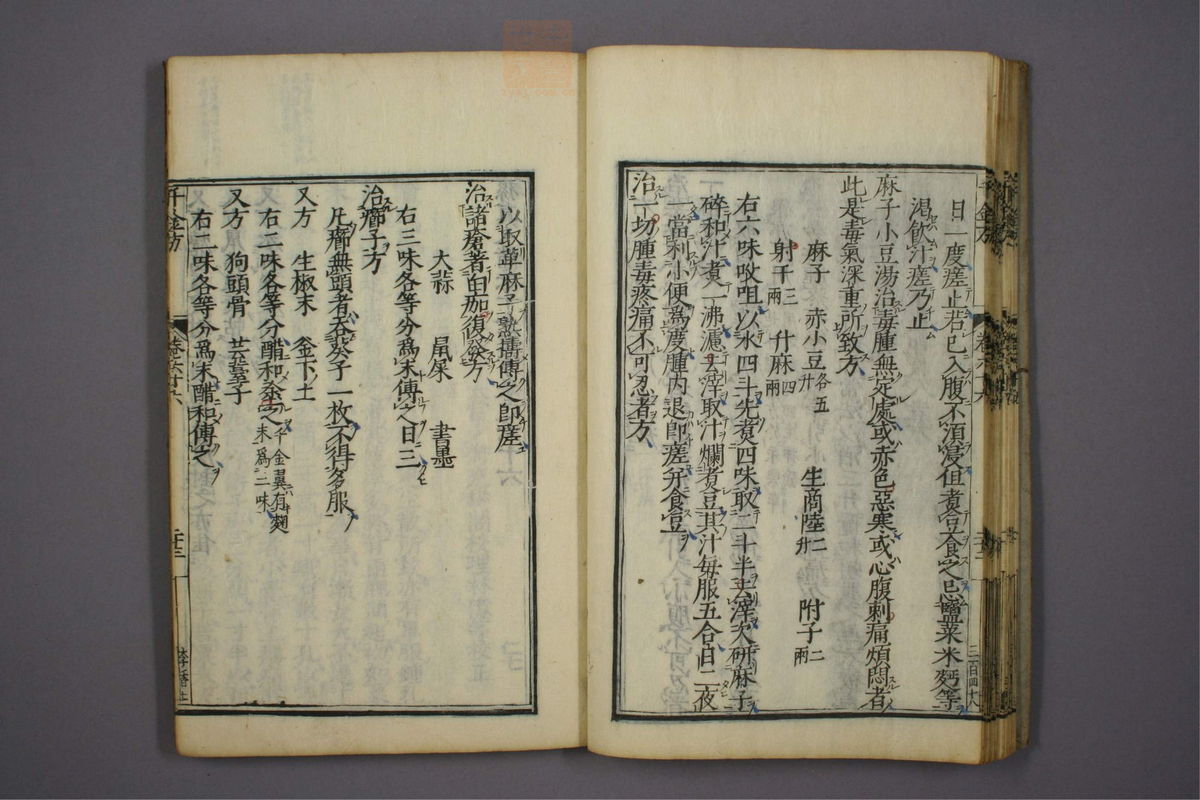 日一度瘥止若已入腹不須裹但煮豆食之忌鹽菜米麪等
渴飲汁瘥乃止
麻子小豆湯治毒腫無定處或赤色惡寒或心腹刺痛煩悶者
此是毒氣深重所致方
麻子 赤小豆各五升 生商陸二升 附子二兩
射干三兩 升麻四兩
右六味㕮咀以水四斗先煮四味取二斗半去滓次研麻子
碎和汁煮一沸濾去滓取汁爛煮豆其汁每服五合日二夜
一當利小便爲度腫内退即瘥并食豆
治一切腫毒疼痛不可忍者方
以取萆麻子熟擣傅之即瘥
治諸瘡著白痂復發方
大蒜 鼠屎 書墨
右三味各等分爲末傅之日三
治癤子方
凡癤無頭者吞葵子一枚不得多服
又方 生椒末 釜下土
右二味各等分醋和傅之千金翼有麴末爲三味
又方 狗頭骨 芸薹子
右二味各等分爲末醋和傅之
千金方
卷六十六